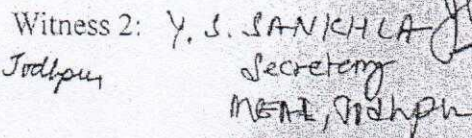 Witness 2: Y. S. SANKHLA
Jodhpur Secretary
Jodhpur